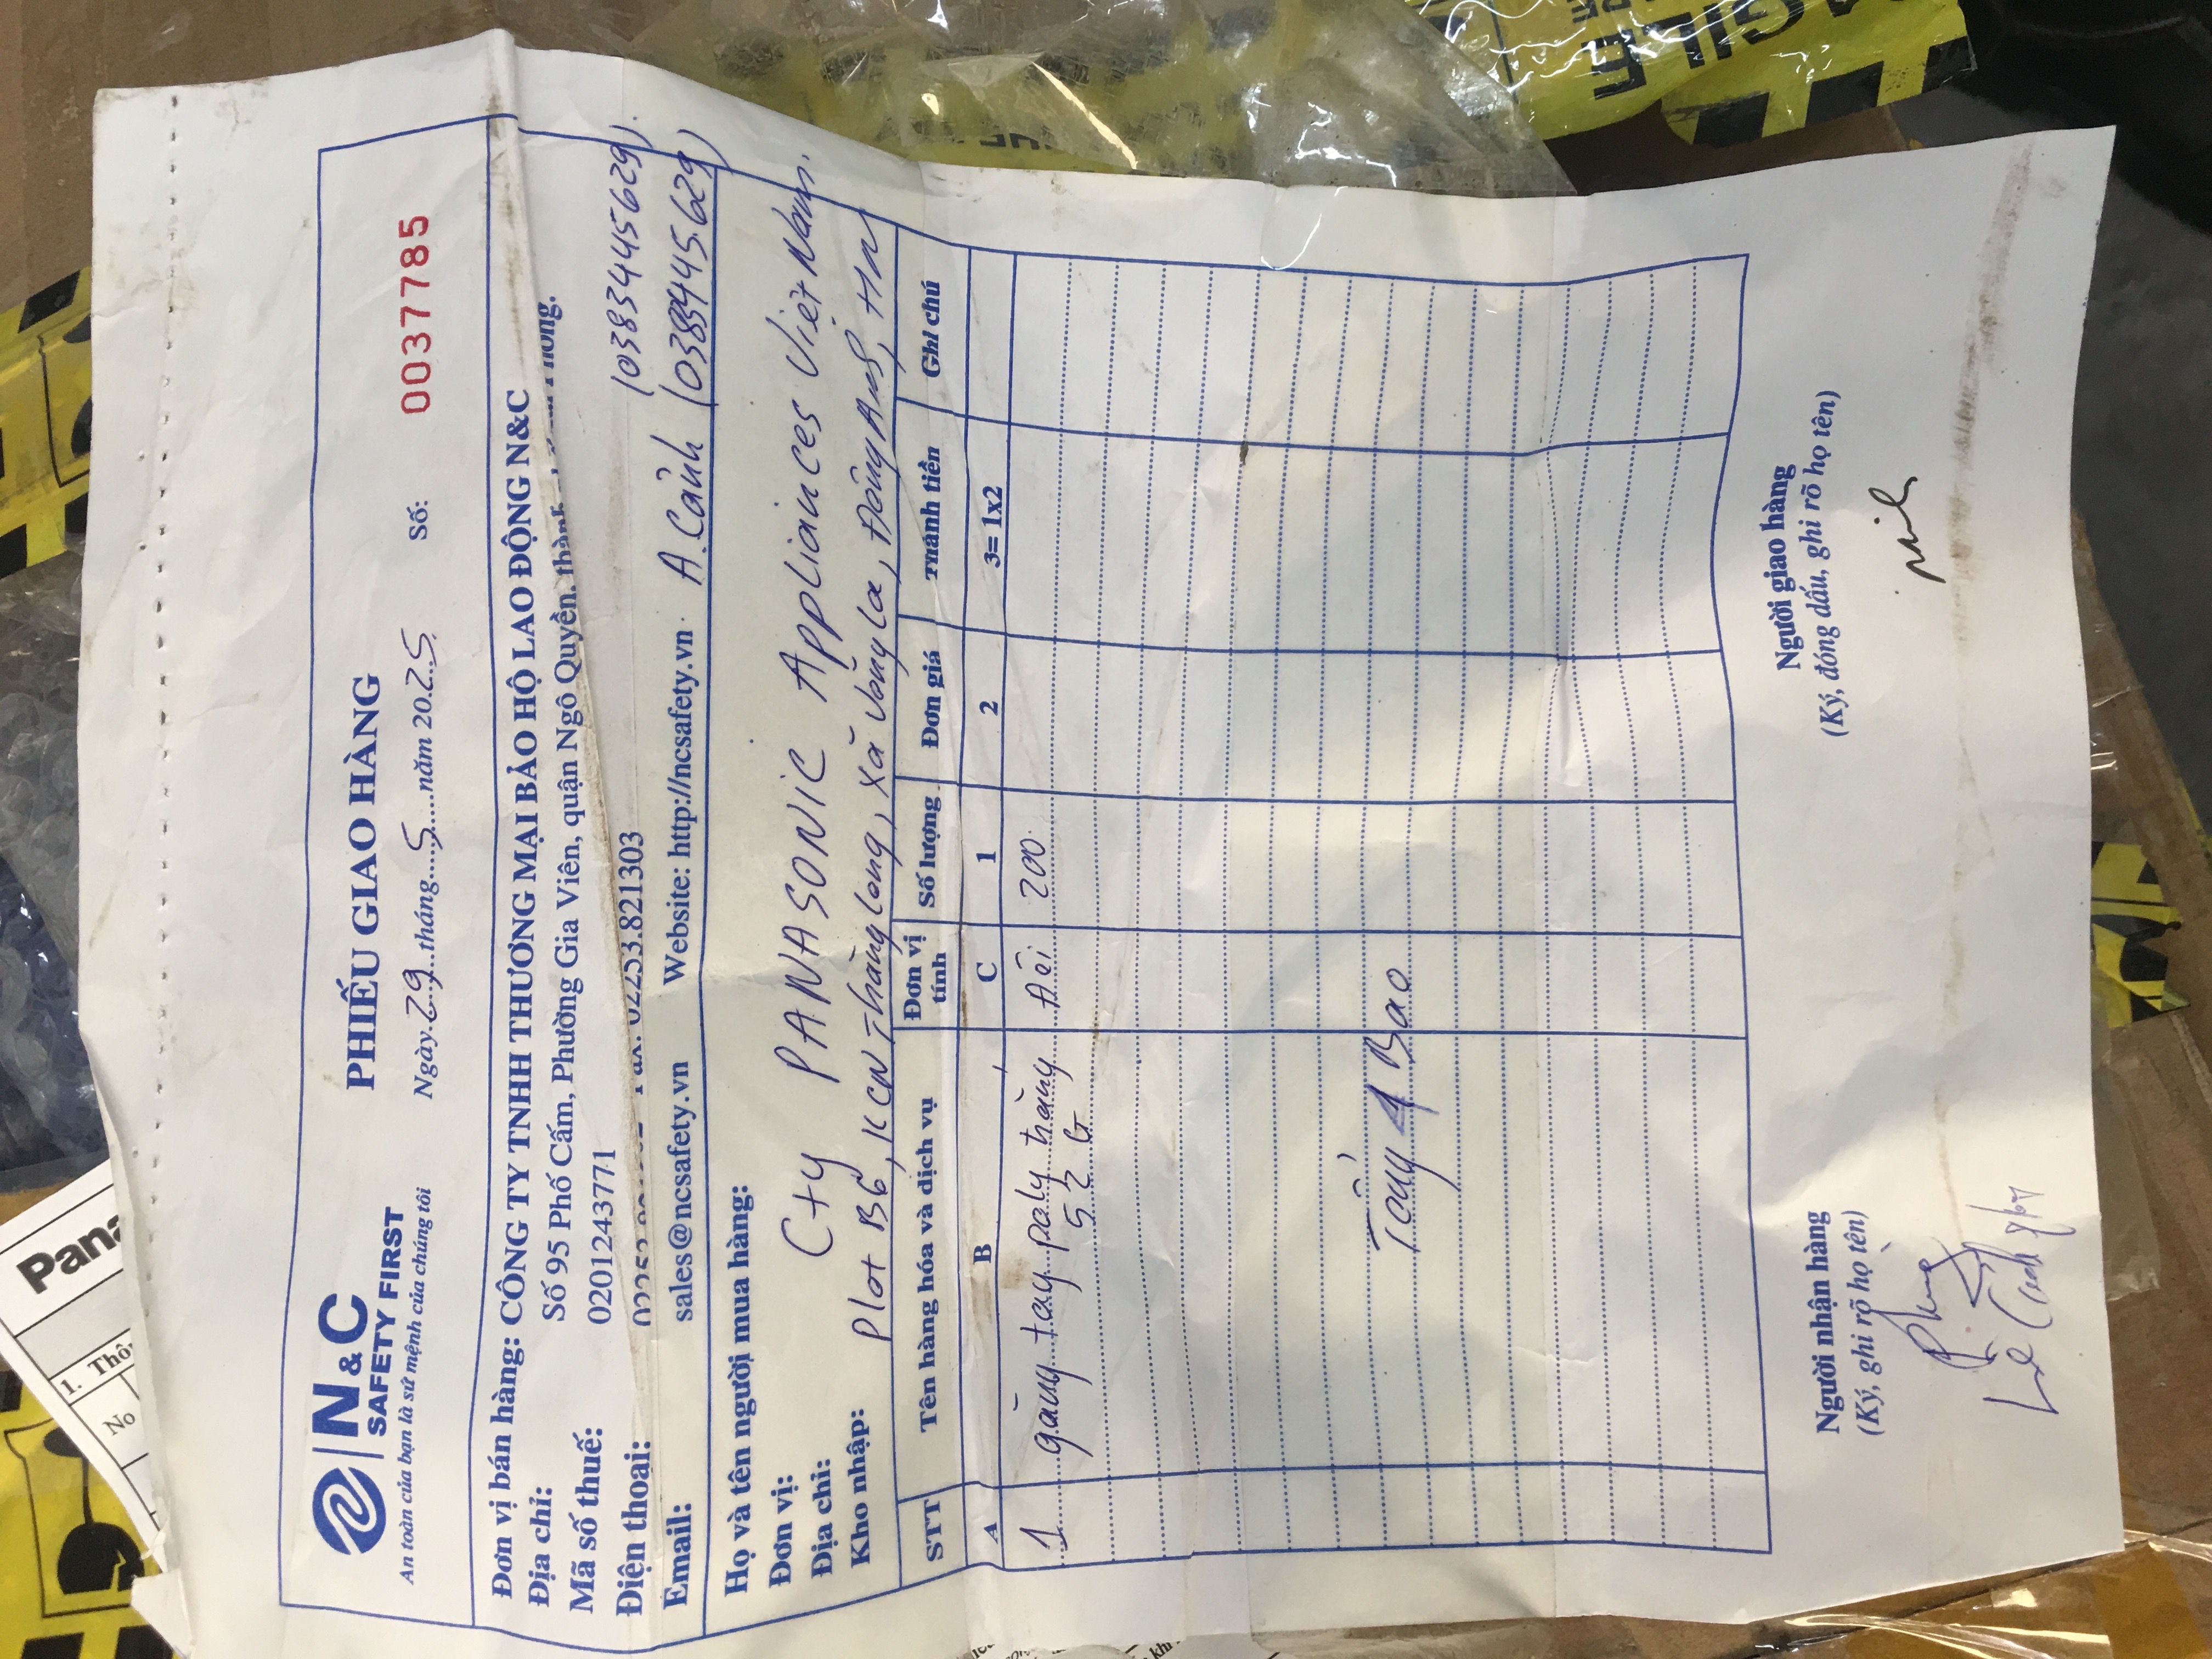 N&C
SAFETY FIRST
An toàn của bạn là sứ mệnh của chúng tôi
PHIẾU GIAO HÀNG
Ngày 29 tháng 5 năm 2025
Số: 0037785
Đơn vị bán hàng: CÔNG TY TNHH THƯƠNG MẠI BẢO HỘ LAO ĐỘNG N&C
Địa chỉ: Số 95 Phố Cấm, Phường Gia Viên, quận Ngô Quyền, thành
Mã số thuế: 0201243771
(03834445629)
Điện thoại: Fax: 02253.821303
Email: sales@ncsafety.vn Website: http://ncsafety.vn A. Cảnh
Họ và tên người mua hàng:
Đơn vị: Cty PANASONIC Appliances Việt Nam.
Địa chỉ: Plot B6, KCN Thăng Long, xã Võng La, Đông Anh, HN
Kho nhập:
STT Tên hàng hóa và dịch vụ Đơn vị tính Số lượng Đơn giá Thành tiền Ghi chú
A B C 1 2 3= 1x2
1 găng tay paly trắng Đôi 200
Tổng 4 Bao
Người nhận hàng Người giao hàng
(Ký, ghi rõ họ tên) (Ký, đóng dấu, ghi rõ họ tên)
Pana
1. Thôn
No
FRAGILE